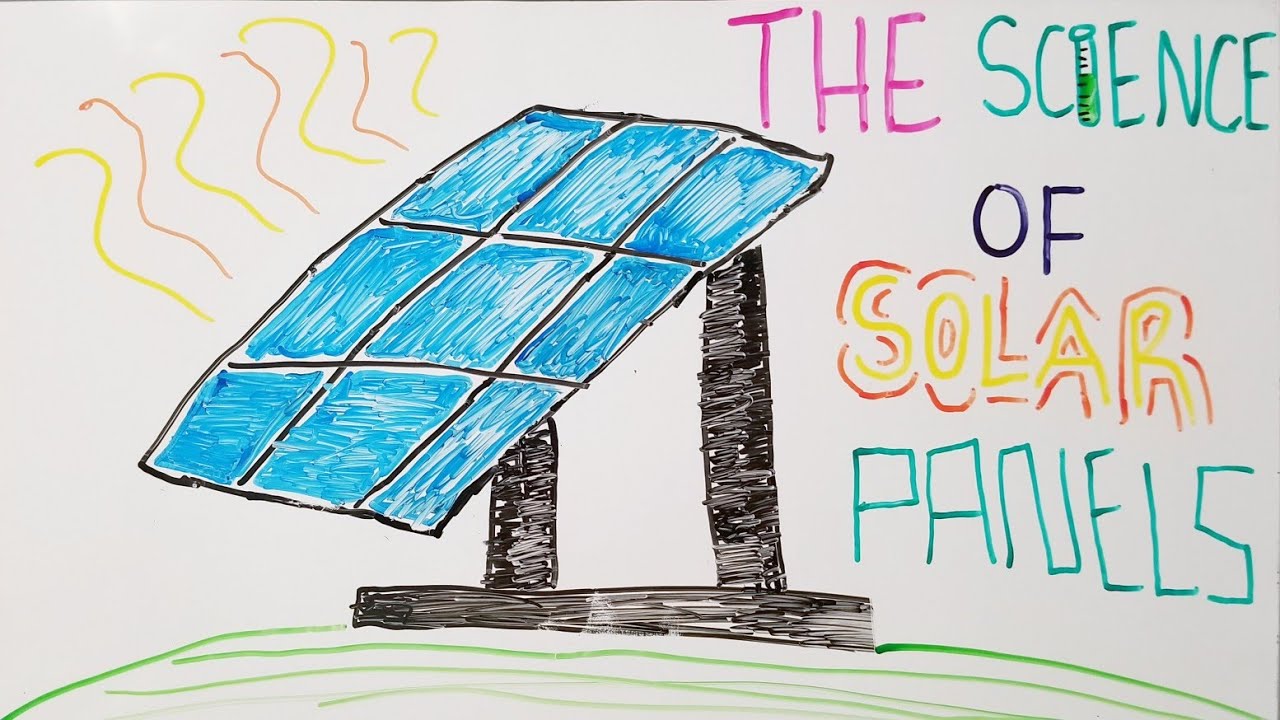 THE SCIENCE
OF
SOLAR
PANELS